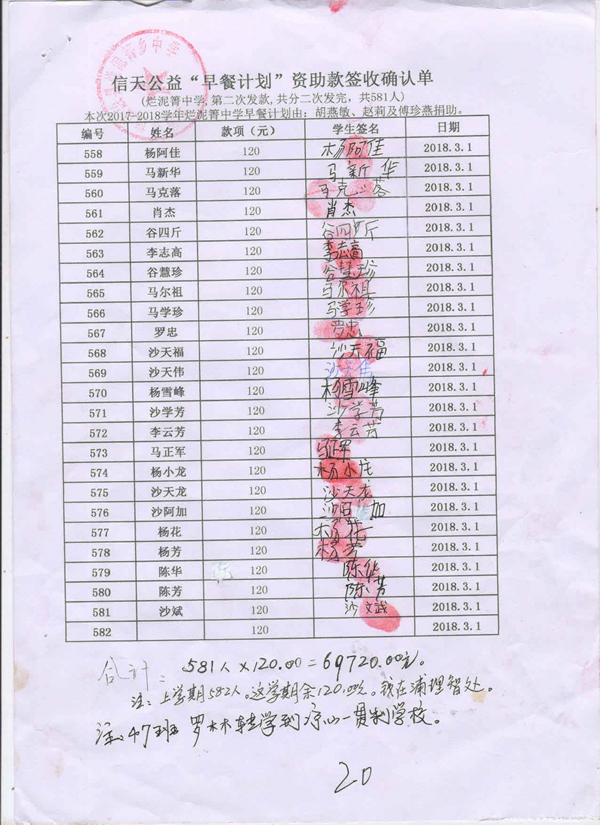 信天公益“早餐计划”资助款签收确认单
(烂泥箐中学,第二次发款,共分二次发完，共581人)
本次2017-2018学年烂泥箐中学早餐计划由：胡燕敏、赵莉及傅珍燕捐助。
编号 姓名 款项（元） 学生签名 日期
558 杨阿佳 120 杨阿佳 2018.3.1
559 马新华 120 马新华 2018.3.1
560 马克落 120 马克落 2018.3.1
561 肖杰 120 肖杰 2018.3.1
562 谷四斤 120 谷四斤 2018.3.1
563 李志高 120 李志高 2018.3.1
564 谷慧珍 120 谷慧珍 2018.3.1
565 马尔祖 120 马尔祖 2018.3.1
566 马学珍 120 马学珍 2018.3.1
567 罗忠 120 罗忠 2018.3.1
568 沙天福 120 沙天福 2018.3.1
569 沙天伟 120 沙天伟 2018.3.1
570 杨雪峰 120 杨雪峰 2018.3.1
571 沙学芳 120 沙学芳 2018.3.1
572 李云芳 120 李云芳 2018.3.1
573 马正军 120 2018.3.1
574 杨小龙 120 杨小龙 2018.3.1
575 沙天龙 120 沙天龙 2018.3.1
576 沙阿加 120 沙阿加 2018.3.1
577 杨花 120 杨花 2018.3.1
578 杨芳 120 杨芳 2018.3.1
579 陈华 120 陈华 2018.3.1
580 陈芳 120 陈芳 2018.3.1
581 沙斌 120 沙文武 2018.3.1
582 120 2018.3.1
合计： 581人×120.00=69720.00元。
注：上学期582人。这学期余120.00元。我在浦理智处。
注：47班 罗木木转学到凉山一贯制学校。
20